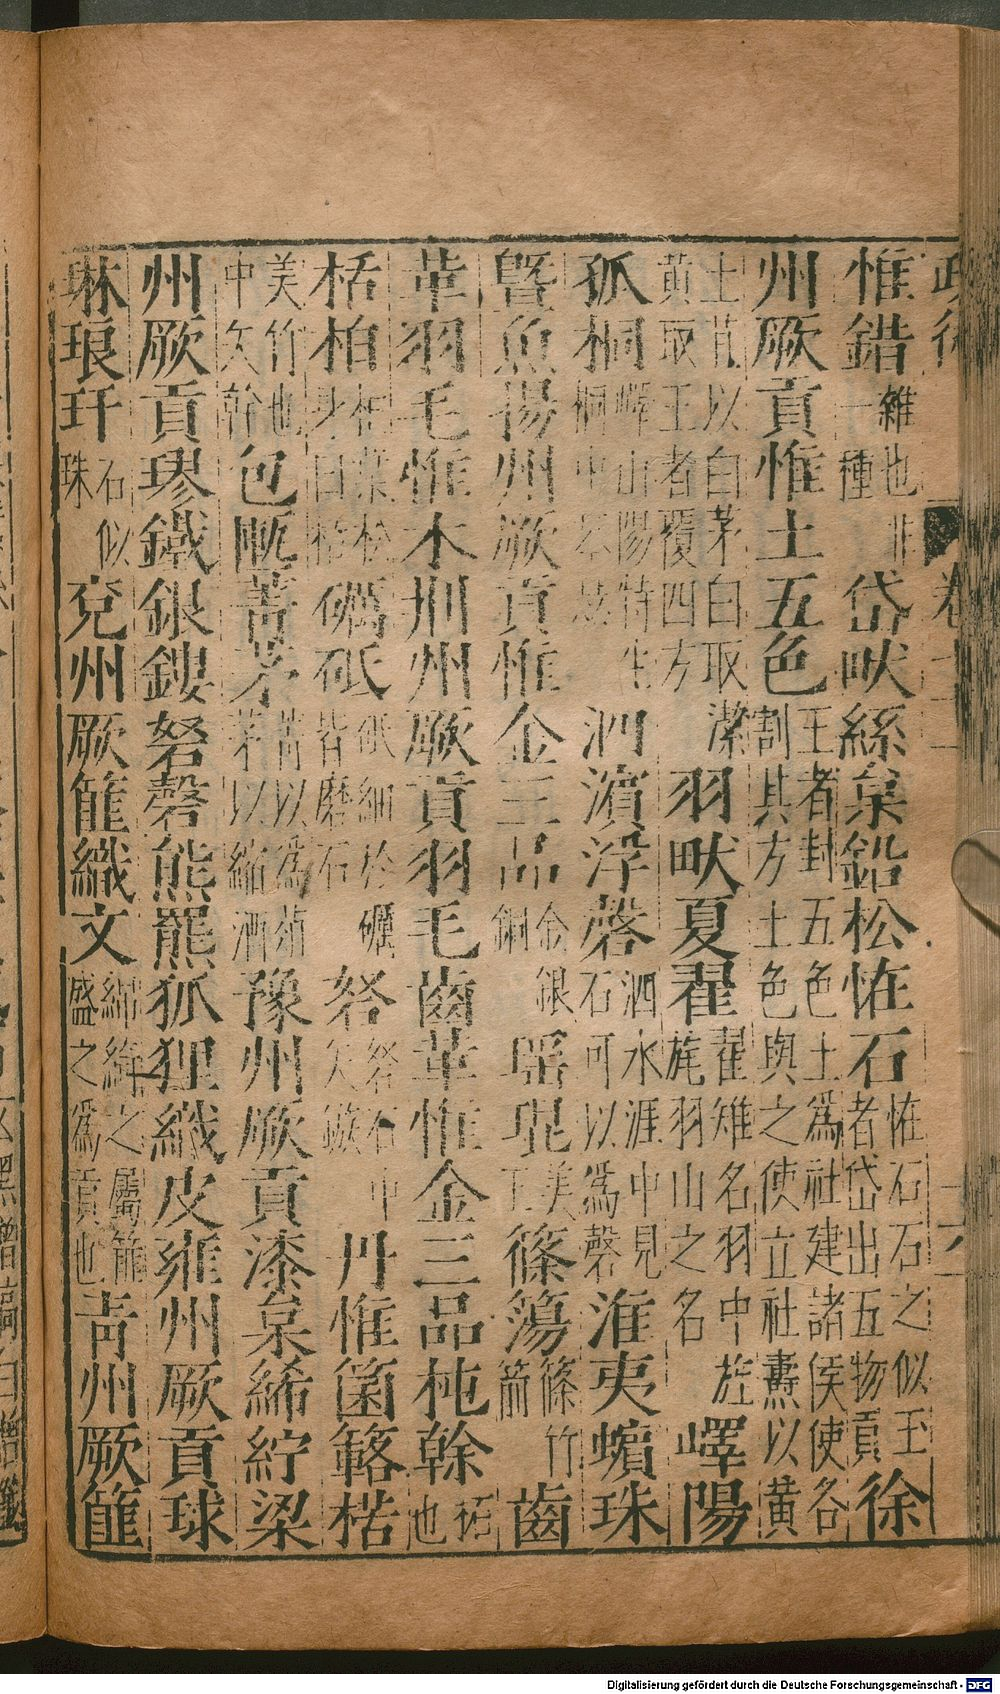 惟錯雜也非一種岱畎絲枲鉛松恠石恠石石之似玉者岱出五物貢徐
州厥貢惟土五色王者封五色土為社建諸侯使各割其方土色與之使立社燾以黃
土苴以白茅白取潔黃取王者覆四方羽畎夏翟翟雉名羽中旌旄羽山之名嶧陽
孤桐嶧山陽特生桐中琴瑟泗濵浮磬泗水涯中見石可以為磬淮夷蠙珠
曁魚揚州厥貢惟金三品金銀銅瑶琨美玉篠簜篠竹箭齒
革羽毛惟木荆州厥貢羽毛齒革惟金三品杶榦柘也
栝柏柏葉松身曰栝礪砥砥細於礪皆磨石砮砮石中矢鏃丹惟箘簵楛
美竹也中矢幹包匭菁茅菁以為菹茅以縮酒豫州厥貢漆枲絺紵梁
州厥貢璆鐵銀鏤砮磬熊羆狐狸織皮雍州厥貢球
琳琅玕石似珠兗州厥篚織文綿綺之屬篚盛之為貢也青州厥篚
卷
Digitalisierung gefördert durch die Deutsche Forschungsgemeinschaft - DFG